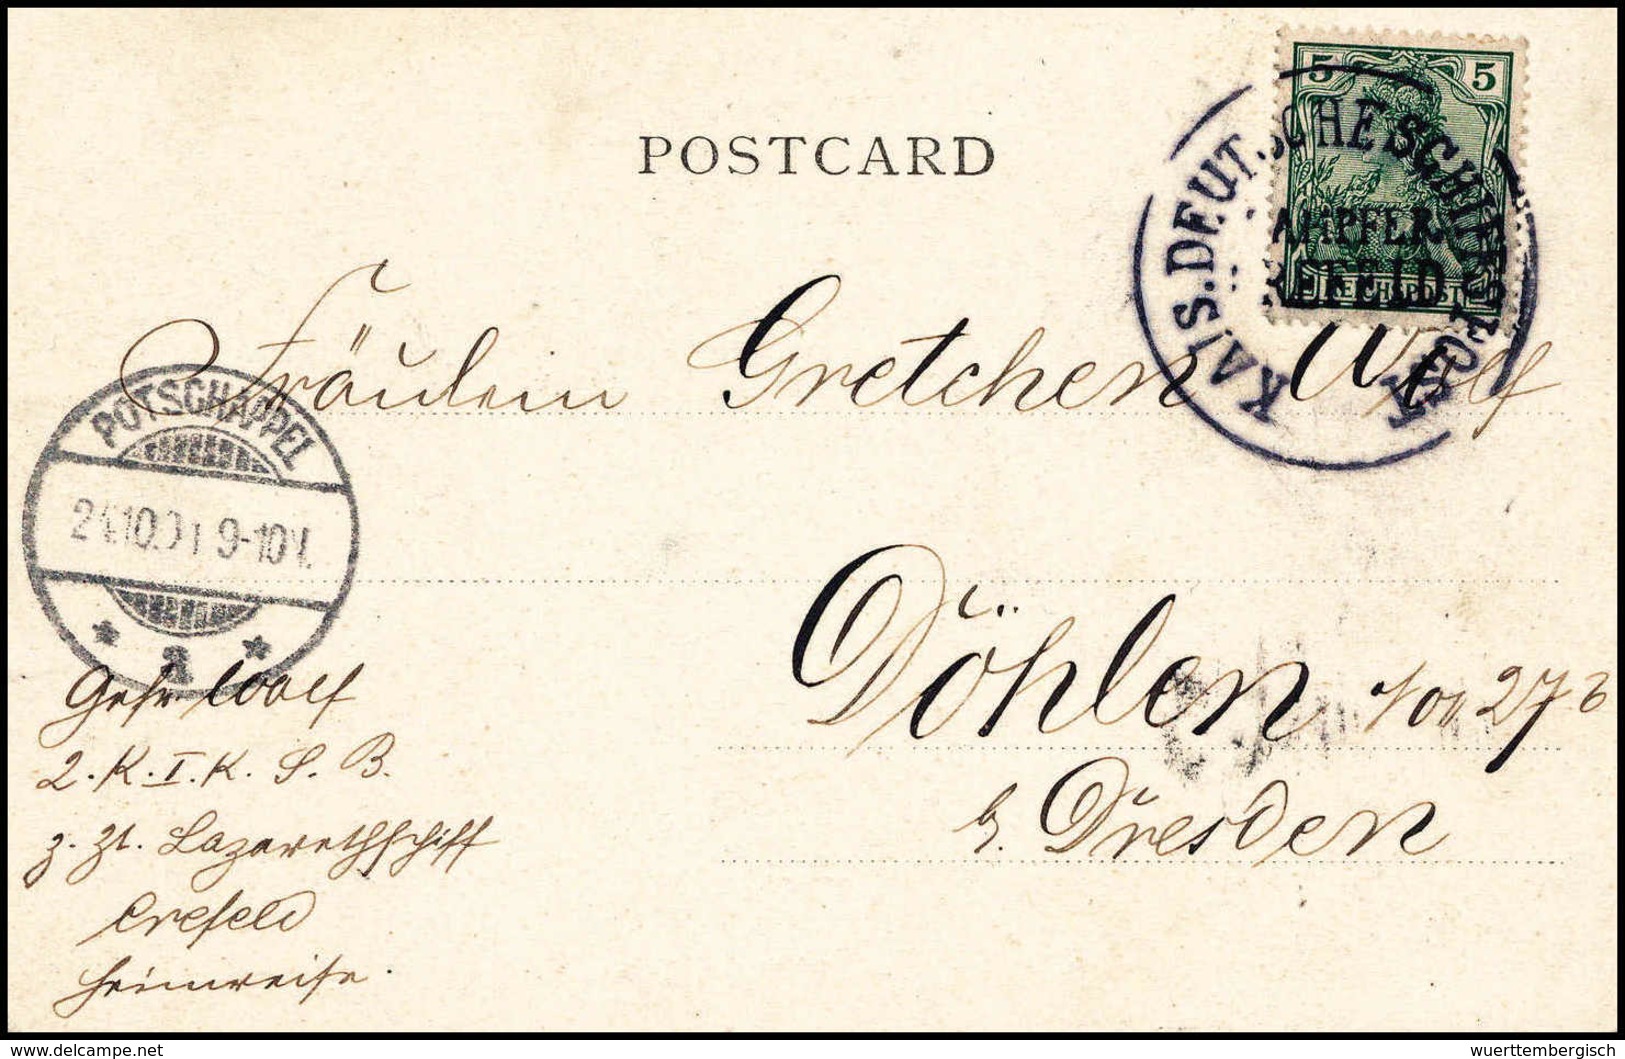 POSTCARD
5 5
KAIS. DEUTSCHE SCHIFFSPOST
AMPFER
REFELD
REICHSPOST
Fräulein Gretchen Wolf
POTSCHAPPEL
24.10.01 9-10V.
a
Döhlen No 27b
b. Dresden
Gefr. Wolf
2. K. I. K. S. B.
z. Zt. Lazarethschiff
Crefeld
Heimreise.
delcampe.net
wuerttembergisch